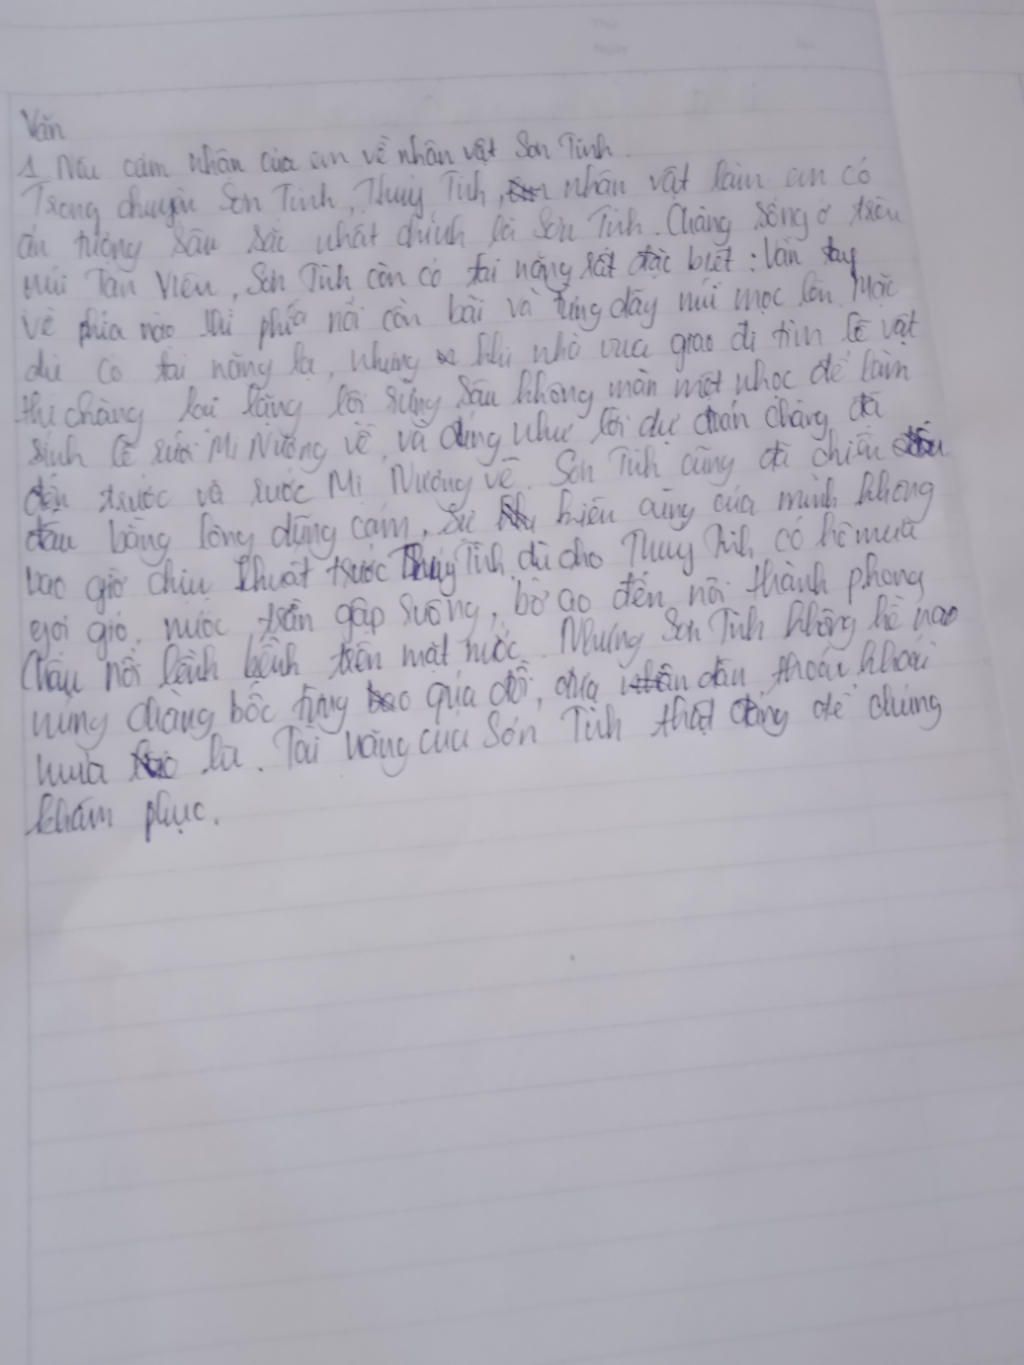 Văn
1. Nêu cảm nhận của em về nhân vật Sơn Tinh.
Trong chuyện Sơn Tinh, Thuỷ Tinh, nhân vật làm em có
ấn tượng sâu sắc nhất chính là Sơn Tinh. Chàng sống ở trên
núi Tản Viên, Sơn Tinh còn có tài năng rất đặc biệt: vẫn tay
về phía nào thì phía nổi cồn bãi và từng dãy núi mọc lên. Mặc
dù có tài năng lạ, nhưng khi nhà vua giao đi tìm lễ vật
thì chàng lại lặng lội rừng sâu không màn mệt nhọc để làm
sính lễ rước Mị Nương về, và đúng như lời dự đoán chàng đã
đến trước và rước Mị Nương về. Sơn Tinh cũng đã chiến
đấu bằng lòng dũng cảm, sự kiên cường của mình không
bao giờ chịu khuất trước Thuỷ Tinh dù cho Thuỷ Tinh có hô mưa
gọi gió, nước tràn gập ruộng, bờ ao đến nỗi thành phong
Châu nổi lềnh bềnh trên mặt nước. Nhưng Sơn Tinh không hề nao
núng chàng bốc từng quả đồi, đưa dân thoát khỏi
mưa lũ. Tài năng của Sơn Tinh thật đáng để chúng
khâm phục.